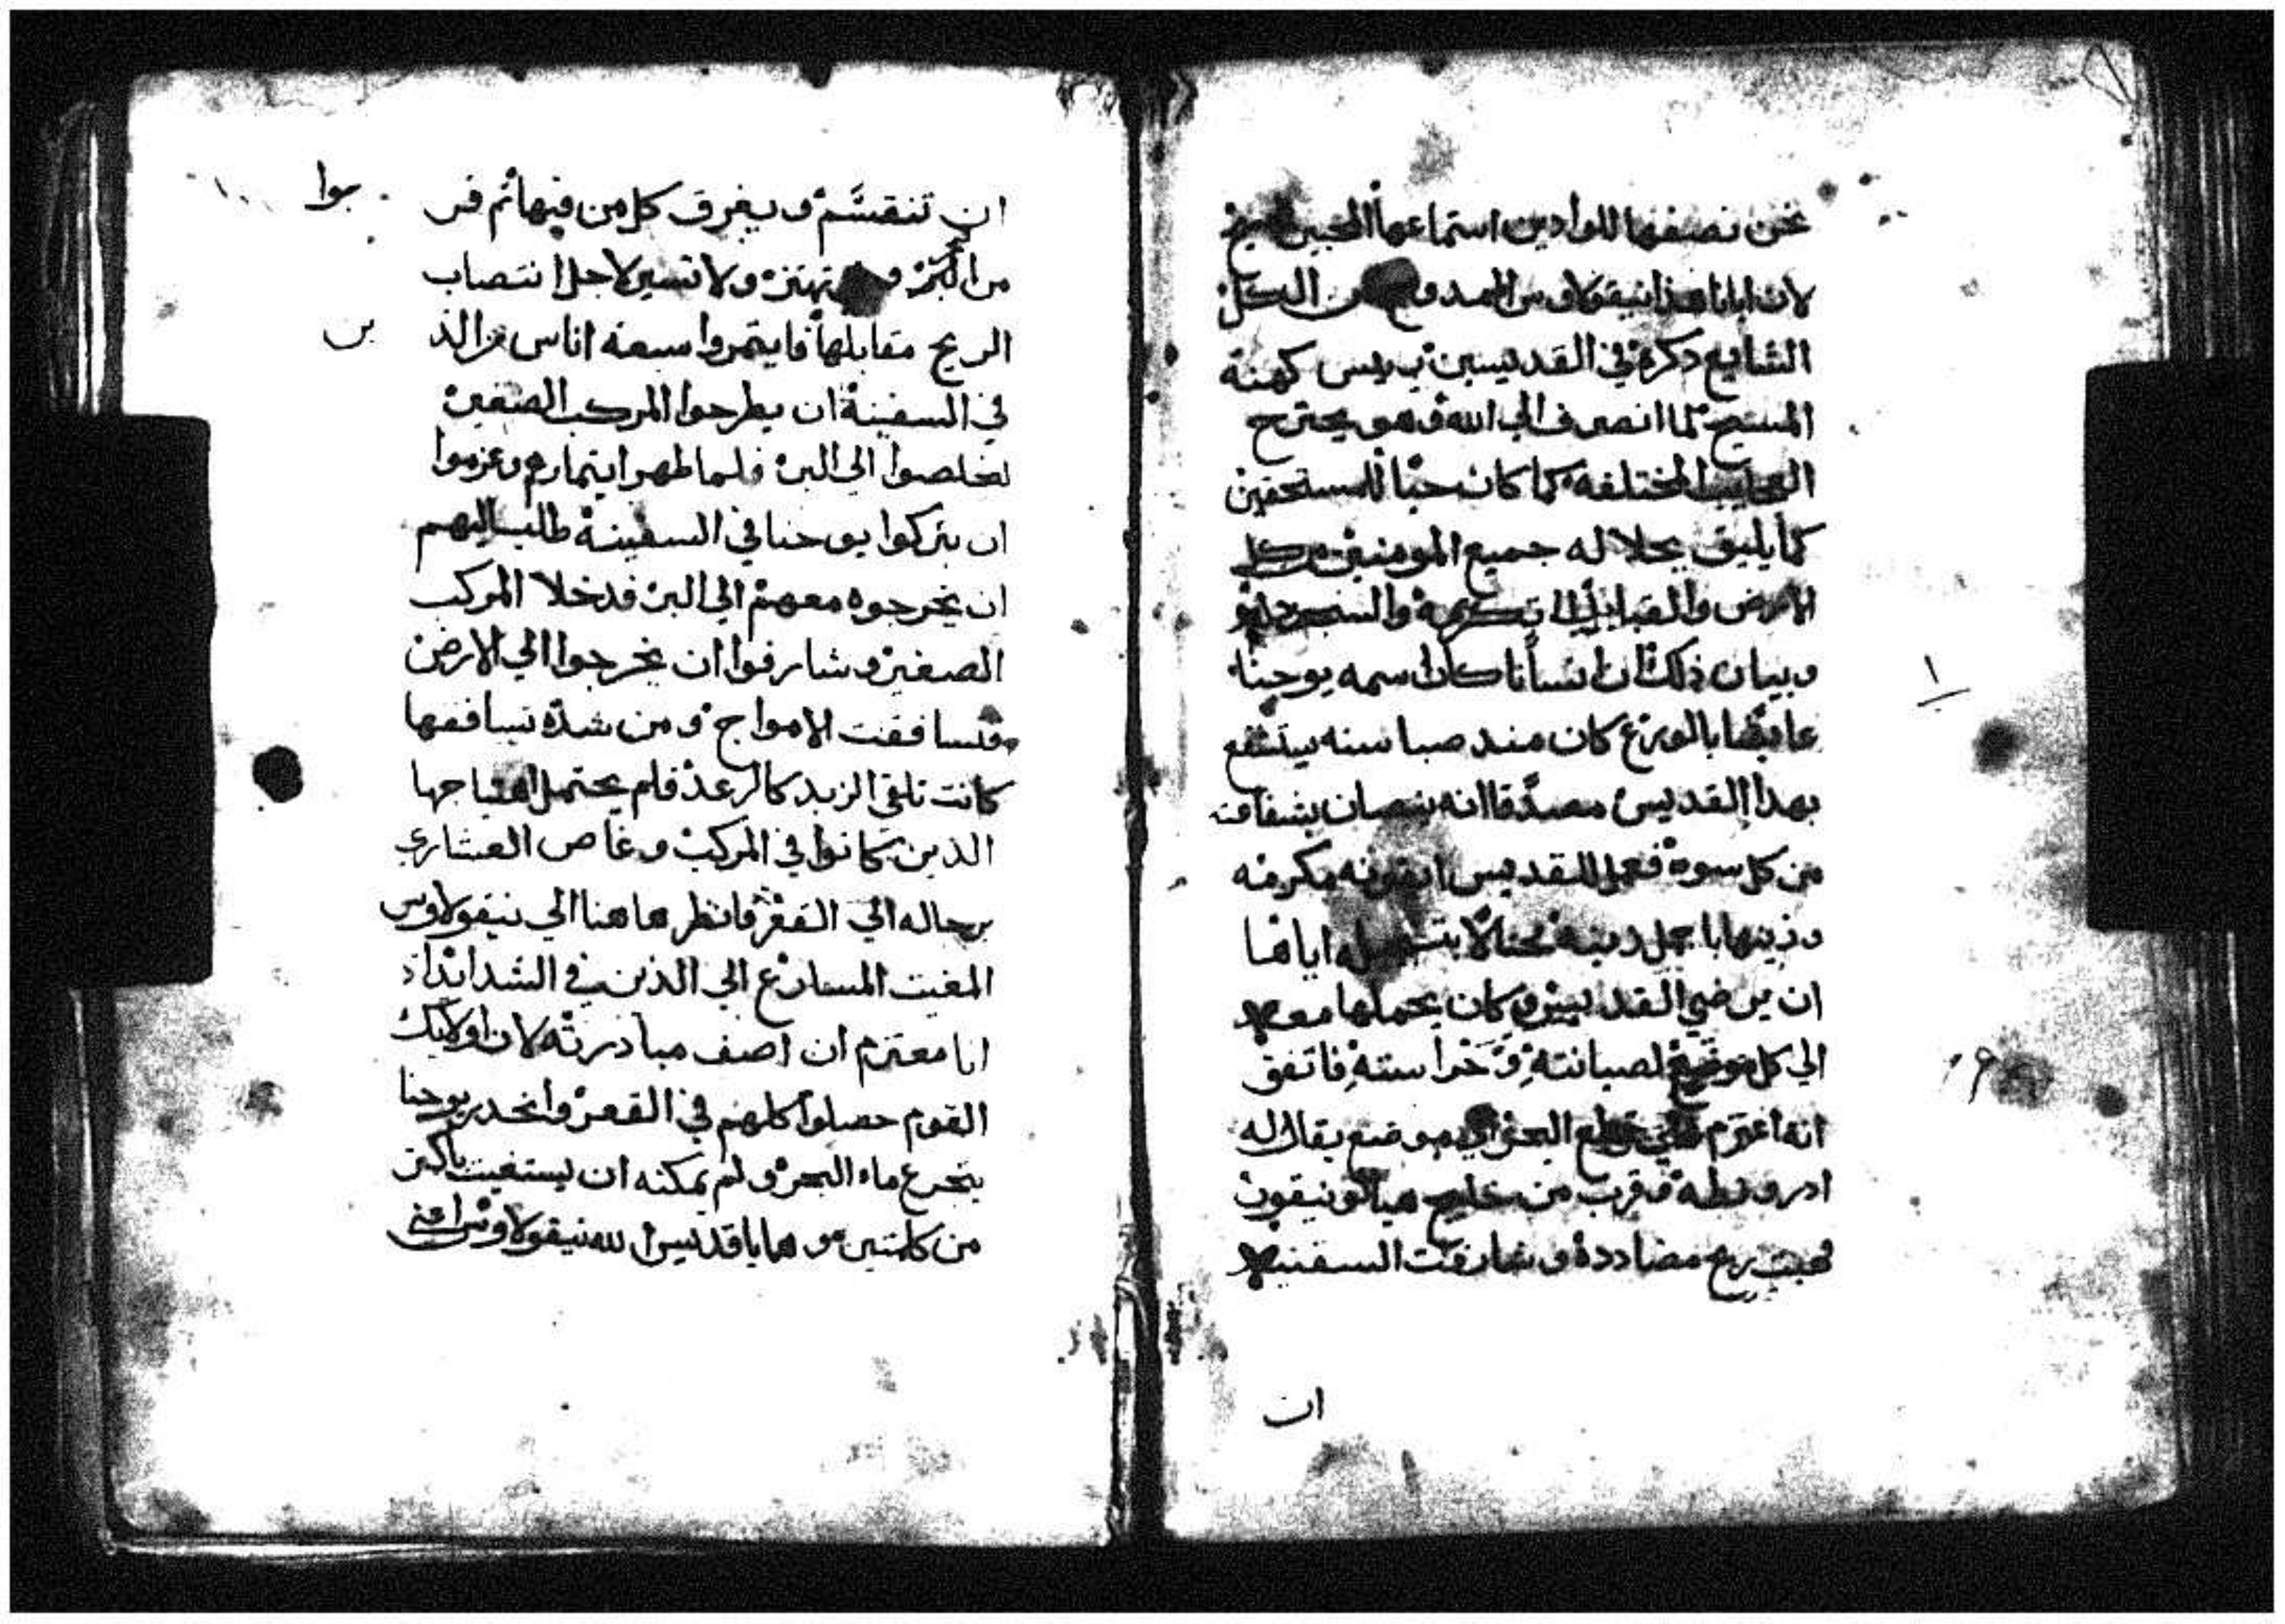 نحن نصفها للوادين استماعها المحبين
لان ابانا هذا نيقولاوس الممدوح من الكل
الشايع ذكره في القديسين ريس كهنة
المسيح لما انصرف الي الله وهو يجترح
العجايب المختلفه كما كان حيا للمستحقين
كما يليق بجلاله جميع المومنين من كل
الارض والقبايل الي تكريمه والسجود له
وبيان ذلك ان انسانا كان اسمه يوحنا
عايشا بالورع كان منذ صبا سنه يستشفع
بهذا القديس مصدقا انه يصان بشفاعته
من كل سوة فعمل للقديس ايقونه مكرمه
وزينها باجمل زينه اياها
ان يرضي القديس وكان يحملها معه
الي كل موضع لصيانته وحراسته فاتفق
انه اعتزم علي قطع البحر الي موضع يقال له
ادرونطه فقرب من خليج
فهبت ريح مضاددة وشارفت السفينه
ان
ان تنقسم ويغرق كل من فيها ثم قربوا
من البر تهتز ولا تسير لاجل انتصاب
الريح مقابلها فايتمروا سبعه اناس من الذين
في السفينة ان يطرحوا المركب الصغير
لخلصوا الي البر فلما ظهر ايتمارهم وعزموا
ان يتركوا يوحنا في السفينة طلب اليهم
ان يخرجوه معهم الي البر فدخلا المركب
الصغير وشارفوا ان يخرجوا الي الارض
فتسافقت الامواج ومن شدة تسافقها
كانت تلقي الزبد كالرعد فلم يحتمل اهتياجها
الذين كانوا في المركب وغاص العشاري
برجاله الي القعر فانظر هاهنا الي نيقولاوس
المغيت المسارع الي الذين في الشدائد اذ
انا معتزم ان اصف مبادرته لان اوليك
القوم حصلوا كلهم في القعر وانحدر يوحنا
يتجرع ماء البحر ولم يمكنه ان يستغيت باكتر
من كلمتين وهما يا قديس الله نيقولاوس اعني